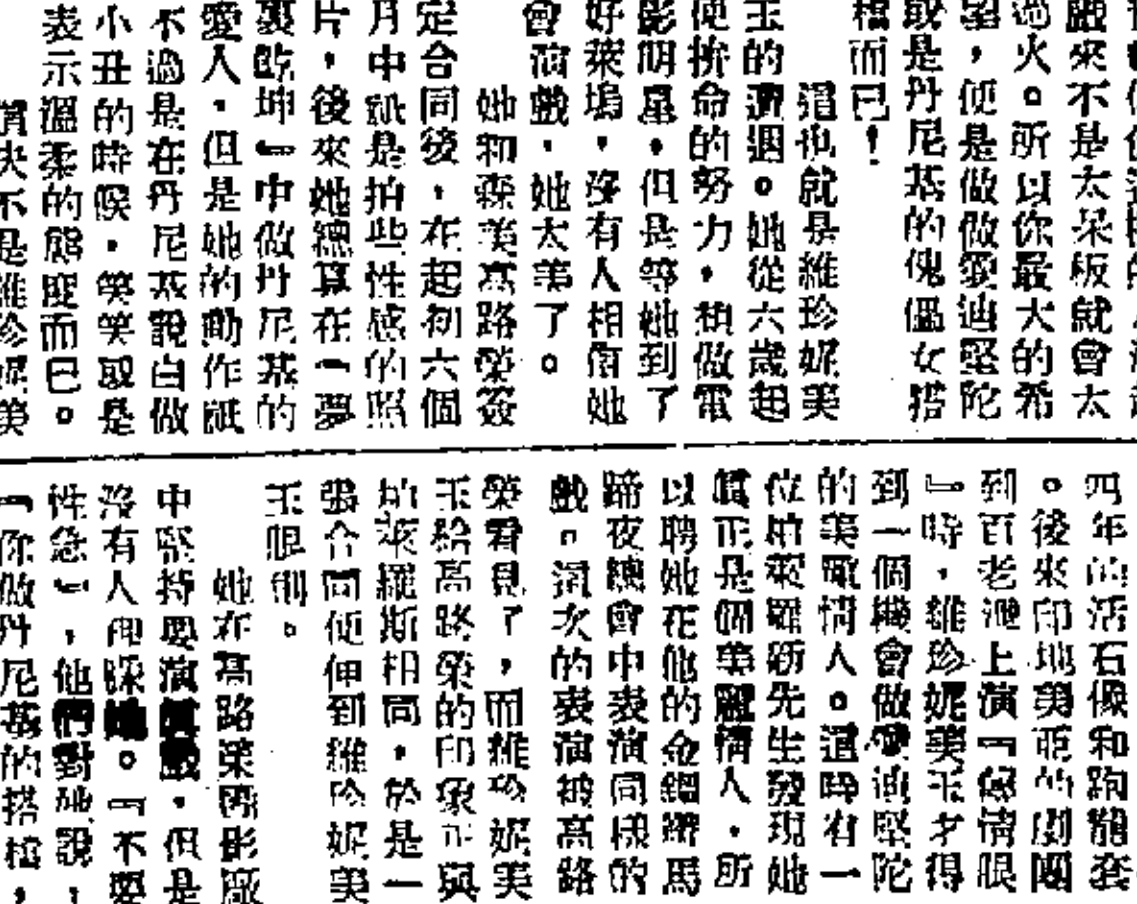 戲來不是太呆板就會太
過火。所以你最大的希
望，便是做做愛迪堅陀
或是丹尼基的傀儡女搭
檔而已！
這也就是維珍妮美
玉的遭遇。她從六歲起
便拚命的努力，想做電
影明星，但是等她到了
好萊塢，沒有人相信她
會演戲，她太美了。
她和森美高路榮簽
定合同後，在起初六個
月中祇是拍些性感的照
片，後來她總算在「夢
裏乾坤」中做丹尼基的
愛人，但是她的動作祇
不過是在丹尼基說白做
小丑的時候，笑笑或是
表示溫柔的態度而已。
決不是維珍妮美
四年的活石像和跑龍套
。後來印地美亞的劇團
到百老滙上演「傳情眼
』時，維珍妮美玉才得
到一個機會做愛迪堅陀
的美麗情人。這時有一
位柏萊羅斯先生發現她
眞正是個美麗情人，所
以聘她在他的金鑽蹄馬
蹄夜總會中表演同樣的
戲。這次的表演被高路
榮看見了，而維珍妮美
玉給高路榮的印象正與
柏萊羅斯相同，於是一
張合同便伸到維珍妮美
玉眼前。
她在高路榮電影廠
中堅持要演眞戲，但是
沒有人理睬她。「不要
性急」，他們對她說，
「你做丹尼基的搭檔，